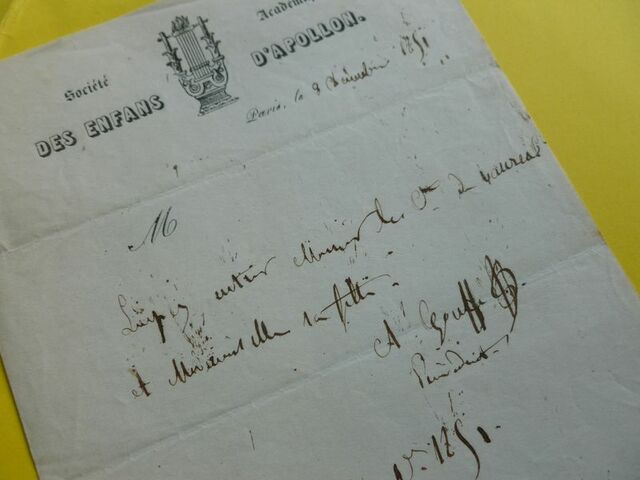 Société
Académique
DES ENFANS
D'APOLLON.
Paris, le 8 Décembre 1851
M
Laissez entrer Monsieur de
et Mademoiselle sa fille.
A Gouffé
Président
1851.